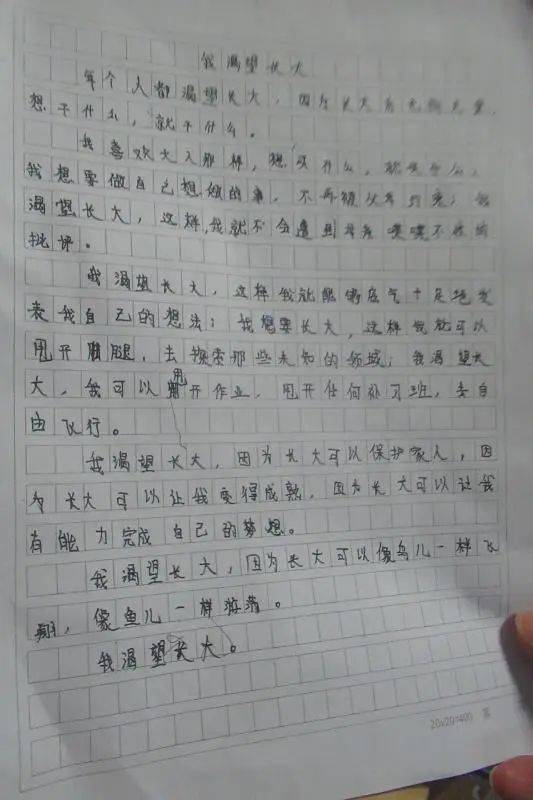 我渴望长大
每个人都渴望长大，因为长大
想干什么，就干什么。
我喜欢大人那样，想买什么，就买什么，
我想要做自己想做的事，不再被父母约束；我
渴望长大，这样，我就不会遭到母亲喋喋不休的
批评。
我渴望长大，这样我就能够底气十足地发
表我自己的想法；我想要长大，这样我就可以
甩开腿，去探索那些未知的领域；我渴望长
大，我可以甩开作业，甩开任何补习班，去自
由飞行。
我渴望长大，因为长大可以保护家人，因
为长大可以让我变得成熟，因为长大可以让我
有能力完成自己的梦想。
我渴望长大，因为长大可以像鸟儿一样飞
翔，像鱼儿一样游荡。
我渴望长大。
20×20=400